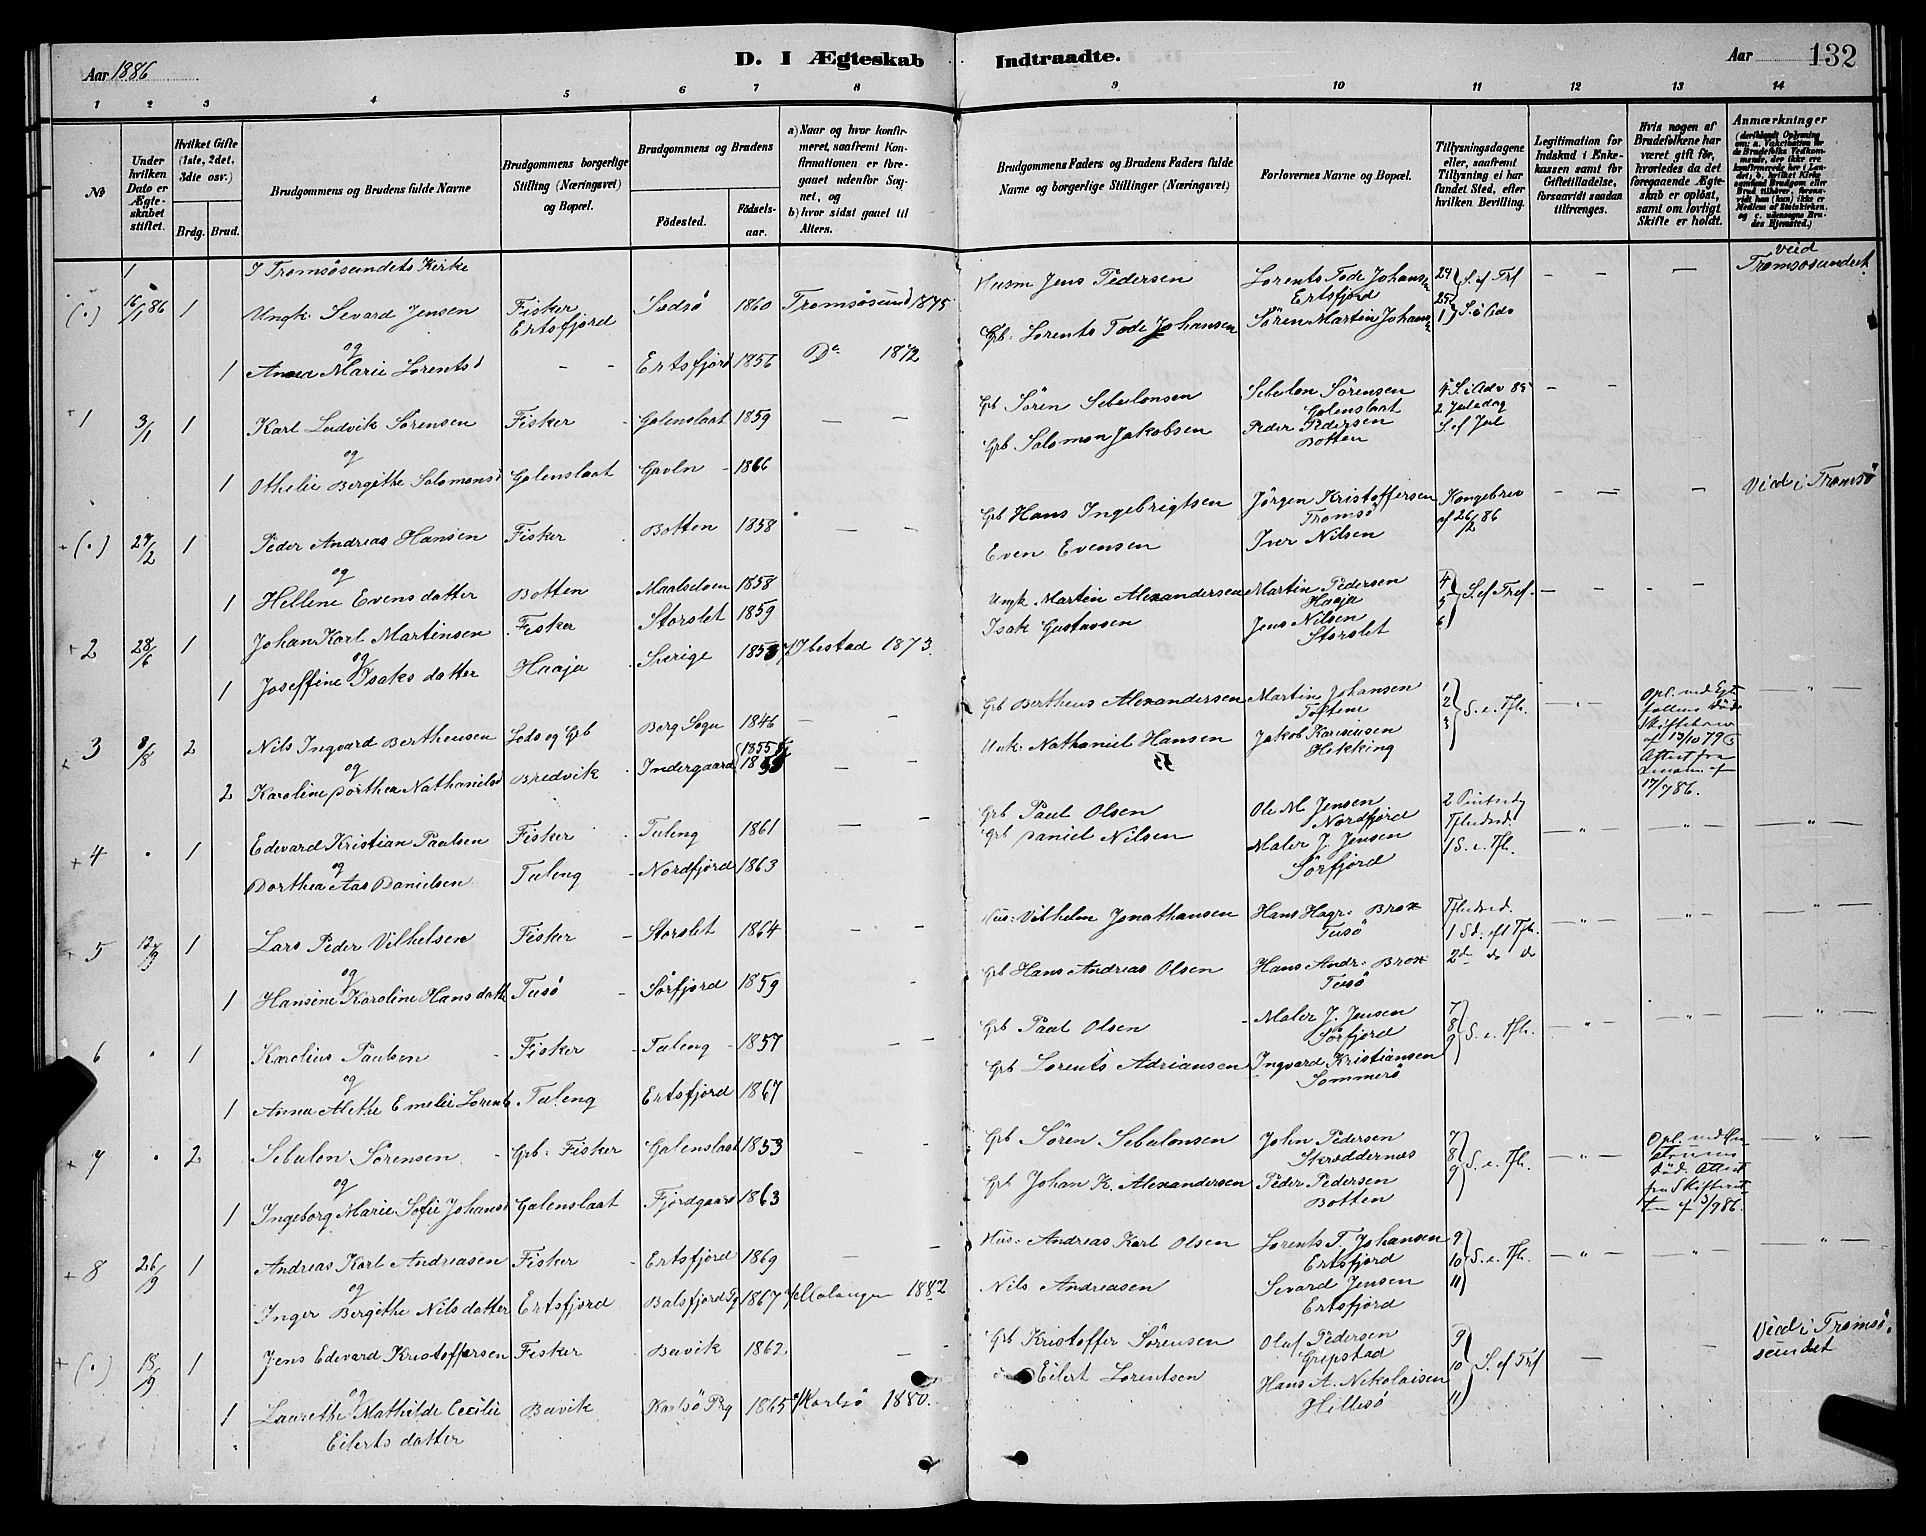 Aar 1886
D. I Ægteskab
Indtraadte.
Aar
132
1 2 3 4 5 6 7 8 9 10 11 12 13 14
No
Under hvilken Dato er Ægteskabet stiftet.
Hvilket Gifte (1ste, 2det, 3die osv.)
Brdg. Brud.
Brudgommens og Brudens fulde Navne
Brudgommens borgerlige Stilling (Næringsvei) og Bopæl.
Brudgommens og Brudens
Fødested.
Fødselsaar.
a) Naar og hvor konfirmeret, saafremt Konfirmationen er foregaaet udenfor Sognet, og
b) hvor sidst gaaet til Alters.
Brudgommens Faders og Brudens Faders fulde Navne og borgerlige Stillinger (Næringsvei)
Forlovernes Navne og Bopæl.
Tillysningsdagene eller, saafremt Tillysning ei har fundet Sted, efter hvilken Bevilling.
Legitimation for Indskud i Enkekassen samt for Giftetilladelse, forsaavidt saadan tiltrænges.
Hvis nogen af Brudefolkene har været gift før, hvorledes da det foregaaende Ægteskab er opløst, samt om lovligt Skifte er holdt.
Anmærkninger
I Tromsøsundets Kirke
(1) 16/1 86 1 Ungk Sevard Jensen Fisker Ertsfjord Sødsø 1860 Tromsøsund 1875 Husm Jens Pedersen Lorents Tode Johans Ertsfjord 24 S. ef Trf — — — Veid Tromsøsundet
og
1 Anna Marie Lorentsd — — Ertsfjord 1856 Do 1872 Grb. Lorents Tode Johansen Søren Martin Johans 25 1 S. i Adv
1 3/1 1 Karl Ludvik Sørensen Fisker Galenslaat 1859 — — Grb Søren Sebulonsen Sebulon Sørensen Galenslaat 4 S. i Adv 85 — —
og
1 Othelie Bergithe Salomonsd Galenslaat Gavln 1866 Grb Salomon Jakobsen Peder Pedersen Botten 2 Juledag S. ef Jul
(1) 27/2 1 Peder Andreas Hansen Fisker Botten 1858 — — Grb Hans Ingebrigtsen Jørgen Kristoffersen Tromsø Kongebrev af 26/2 86 — — — Vied i Tromsø
og
1 Hellene Evensdatter Botten Maalselven 1858 Even Evensen Iver Nilsen
2 28/6 1 Johan Karl Martinsen Fisker Storslet 1859 Ungk Martin Alexandersen Martin Pedersen Haaja 4 5 6 S. ef Tref. — — —
og
1 Joseffine Isaksdatter Haaja Sverige 1853 Ibestad 1873. Isak Gustavsen Jens Nilsen Storslet
3 8/8 2 Nils Ingvard Bertheusen Leds og Grb Berg Sogn 1846 — — Grb Bertheus Alexandersen Martin Johansen Toften 1 2 3 S. e. Tfh. — " — Opl. ved Egtefellens Død Skiftebrev af 13/10 79 Attest fra Lensm. af 17/7 86. — " —
og
2 Karoline Dorthea Nathanielsd Bredvik Indergaard 1855 — — Unk. Nathaniel Hansen Jakob Karinusen Hekking
4 " 1 Edevard Kristian Paulsen Fisker Tuleng 1861 — — Grb Paul Olsen Ole M. Jensen Nordfjord 2 Pintsedg Tfhdsd. 1 S. e. Tfh. — " — — " — — " —
og
Dorthea Aas Danielsen Tuleng Nordfjord 1863 Grb Daniel Nilsen Maler J. Jensen Sørfjord
5 12/9 1 Lars Peder Vilhelsen Fisker Storslet 1864 — — Hus: Vilhelm Jonathansen Hans Hagr. Brox Tusø Tfhdsd. 1 Sd. ef Tfh. 2d do d — " — — " — — " —
og
1 Hansine Karoline Hansdatter Tusø Sørfjord 1859 Grb Hans Andreas Olsen Hans Andr. Brox Tusø
6 " 1 Karolius Paulsen Fisker Tuleng 1857 — — Grb Paul Olsen Maler J. Jensen Sørfjord 7 8 9 S. e. Tfh. — " — — " — — " —
og
1 Anna Alethe Emelie Lorents Tuleng Ertsfjord 1867 Grb Lorents Adriansen Ingvard Kristiansen Sommerø
7 " 2 Sebulon Sørensen Grb. Fisker Galenslaat 1853 — — Grb Søren Sebulonsen John Pedersen Skræddernæs 7 8 9 S. e. Tfh. — " — Opl. ved Hustruens Død. Attest fra Skifteretten af 3/9 86. — " —
og
1 Ingeborg Marie Sofie Johansd Galenslaat Fjordgaard 1863 Grb Johan K. Alexandersen Peder Pedersen Botten
8 26/9 1 Andreas Karl Andreasen Fisker Ertsfjord 1869 — — Hus: Andreas Karl Olsen Lorents T. Johansen Ertsfjord 9 10 11 S. e. Tfh. — " — " — " —
og
Inger Bergithe Nilsdatter Ertsfjord Balsfjord Pg 1867 a/ Malangen 1882 Nils Andreasen Sevard Jensen Ertsfjord
(1) 18/9 1 Jens Edevard Kristoffersen Fisker Buvik 1862 — — Grb Kristoffer Sørensen Olaf Pedersen Grepstad 9 10 11 S. ef Trf — — Vied i Tromsøsundet
og
1 Laurethe Mathilde Cecilie Eilertsdatter Buvik Karlsø Pg 1865 a/ Karlsø 1880. Eilert Lorentsen Hans A. Nikolaisen Hillesø